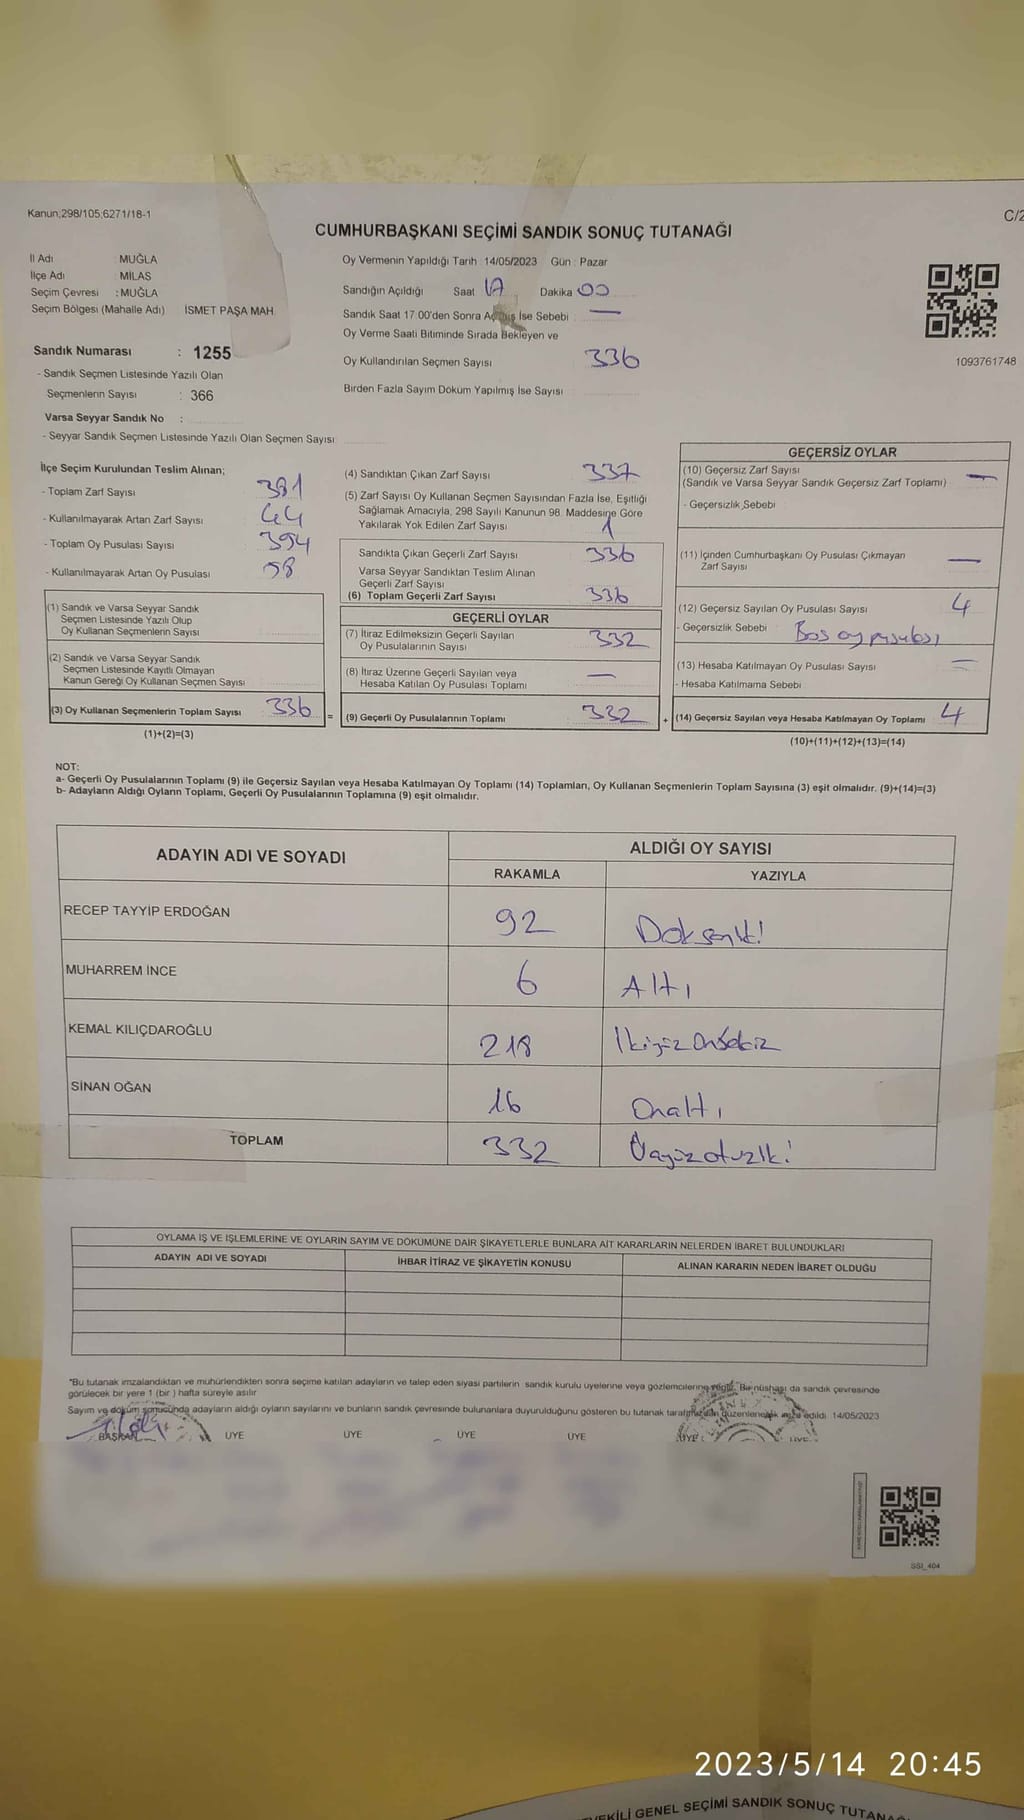 Kanun;298/105;6271/18-1
C/2
CUMHURBAŞKANI SEÇİMİ SANDIK SONUÇ TUTANAĞI
İl Adı : MUĞLA
İlçe Adı : MİLAS
Seçim Çevresi : MUĞLA
Seçim Bölgesi (Mahalle Adı) İSMET PAŞA MAH.
Oy Vermenin Yapıldığı Tarih : 14/05/2023 Gün : Pazar
Sandığın Açıldığı Saat Dakika 00
Sandık Saat 17:00'den Sonra Açılmış İse Sebebi : —
Oy Verme Saati Bitiminde Sırada Bekleyen ve
Oy Kullandırılan Seçmen Sayısı 336
Birden Fazla Sayım Döküm Yapılmış İse Sayısı
1093761748
Sandık Numarası : 1255
- Sandık Seçmen Listesinde Yazılı Olan
Seçmenlerin Sayısı : 366
Varsa Seyyar Sandık No :
- Seyyar Sandık Seçmen Listesinde Yazılı Olan Seçmen Sayısı:
İlçe Seçim Kurulundan Teslim Alınan;
- Toplam Zarf Sayısı 381
- Kullanılmayarak Artan Zarf Sayısı 44
- Toplam Oy Pusulası Sayısı 394
- Kullanılmayarak Artan Oy Pusulası 58
(1) Sandık ve Varsa Seyyar Sandık
Seçmen Listesinde Yazılı Olup
Oy Kullanan Seçmenlerin Sayısı
(2) Sandık ve Varsa Seyyar Sandık
Seçmen Listesinde Kayıtlı Olmayan
Kanun Gereği Oy Kullanan Seçmen Sayısı
(3) Oy Kullanan Seçmenlerin Toplam Sayısı 336 =
(1)+(2)=(3)
(4) Sandıktan Çıkan Zarf Sayısı 337
(5) Zarf Sayısı Oy Kullanan Seçmen Sayısından Fazla İse, Eşitliği
Sağlamak Amacıyla, 298 Sayılı Kanunun 98. Maddesine Göre
Yakılarak Yok Edilen Zarf Sayısı 1
Sandıkta Çıkan Geçerli Zarf Sayısı 336
Varsa Seyyar Sandıktan Teslim Alınan
Geçerli Zarf Sayısı
(6) Toplam Geçerli Zarf Sayısı 336
GEÇERLİ OYLAR
(7) İtiraz Edilmeksizin Geçerli Sayılan
Oy Pusulalarının Sayısı 332
(8) İtiraz Üzerine Geçerli Sayılan veya
Hesaba Katılan Oy Pusulası Toplamı —
(9) Geçerli Oy Pusulalarının Toplamı 332 +
GEÇERSİZ OYLAR
(10) Geçersiz Zarf Sayısı
(Sandık ve Varsa Seyyar Sandık Geçersiz Zarf Toplamı) —
- Geçersizlik Sebebi
(11) İçinden Cumhurbaşkanı Oy Pusulası Çıkmayan
Zarf Sayısı —
(12) Geçersiz Sayılan Oy Pusulası Sayısı 4
- Geçersizlik Sebebi Boş oy pusulası
(13) Hesaba Katılmayan Oy Pusulası Sayısı —
- Hesaba Katılmama Sebebi
(14) Geçersiz Sayılan veya Hesaba Katılmayan Oy Toplamı 4
(10)+(11)+(12)+(13)=(14)
NOT:
a- Geçerli Oy Pusulalarının Toplamı (9) ile Geçersiz Sayılan veya Hesaba Katılmayan Oy Toplamı (14) Toplamları, Oy Kullanan Seçmenlerin Toplam Sayısına (3) eşit olmalıdır. (9)+(14)=(3)
b- Adayların Aldığı Oyların Toplamı, Geçerli Oy Pusulalarının Toplamına (9) eşit olmalıdır.
ADAYIN ADI VE SOYADI ALDIĞI OY SAYISI
RAKAMLA YAZIYLA
RECEP TAYYİP ERDOĞAN 92 Doksaniki
MUHARREM İNCE 6 Altı
KEMAL KILIÇDAROĞLU 218 İkiyüz OnSekiz
SİNAN OĞAN 16 Onaltı
TOPLAM 332 Üçyüzotuziki
OYLAMA İŞ VE İŞLEMLERİNE VE OYLARIN SAYIM VE DÖKÜMÜNE DAİR ŞİKAYETLERLE BUNLARA AİT KARARLARIN NELERDEN İBARET BULUNDUKLARI
ADAYIN ADI VE SOYADI İHBAR İTİRAZ VE ŞİKAYETİN KONUSU ALINAN KARARIN NEDEN İBARET OLDUĞU
*Bu tutanak imzalandıktan ve mühürlendikten sonra seçime katılan adayların ve talep eden siyasi partilerin sandık kurulu üyelerine veya gözlemcilerine verilir. Bir nüshası da sandık çevresinde
görülecek bir yere 1 (bir ) hafta süreyle asılır
Sayım ve döküm sonucunda adayların aldığı oyların sayılarını ve bunların sandık çevresinde bulunanlara duyurulduğunu gösteren bu tutanak tarafımızdan düzenlenerek imza edildi. 14/05/2023
BAŞKAN ÜYE ÜYE ÜYE ÜYE ÜYE ÜYE
SSI_404
2023/5/14 20:45
VEKİLİ GENEL SEÇİMİ SANDIK SONUÇ TUTANAĞI